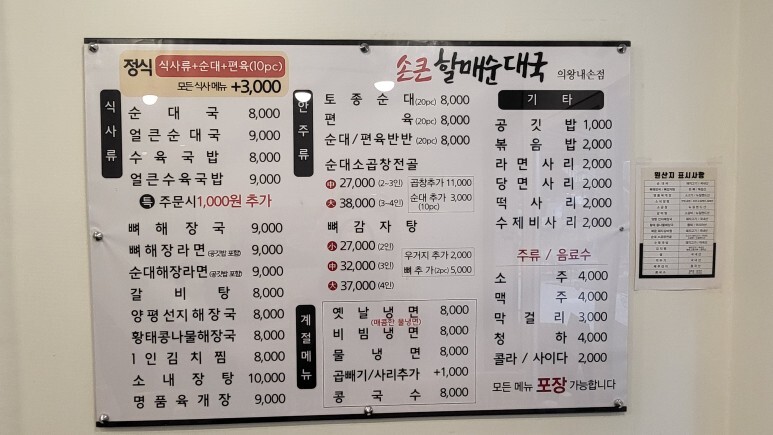 정식 식사류+순대+편육(10pc)
모든 식사 메뉴 +3,000
식사류
순대국 8,000
얼큰순대국 9,000
수육국밥 8,000
얼큰수육국밥 9,000
특 주문시 1,000원 추가
뼈해장국 9,000
뼈해장라면(공깃밥 포함) 9,000
순대해장라면(공깃밥 포함) 9,000
갈비탕 8,000
양평선지해장국 8,000
황태콩나물해장국 8,000
1인김치찜 8,000
소내장탕 10,000
명품육개장 9,000
손큰 할매순대국 의왕내손점
안주류
토종순대(20pc) 8,000
편육(20pc) 8,000
순대/편육반반(20pc) 8,000
순대소곱창전골
中 27,000 (2~3인)
大 38,000 (3~4인)
곱창추가 11,000
순대 추가 3,000
(10pc)
뼈감자탕
小 27,000 (2인)
中 32,000 (3인)
大 37,000 (4인)
우거지 추가 2,000
뼈 추가(2pc) 5,000
계절메뉴
옛날냉면 8,000
(매콤한 물냉면)
비빔냉면 8,000
물냉면 8,000
곱빼기/사리추가 +1,000
콩국수 8,000
기타
공깃밥 1,000
볶음밥 2,000
라면사리 2,000
당면사리 2,000
떡사리 2,000
수제비사리 2,000
주류 / 음료수
소주 4,000
맥주 4,000
막걸리 3,000
청하 4,000
콜라 / 사이다 2,000
모든 메뉴 포장 가능합니다
원산지 표시사항